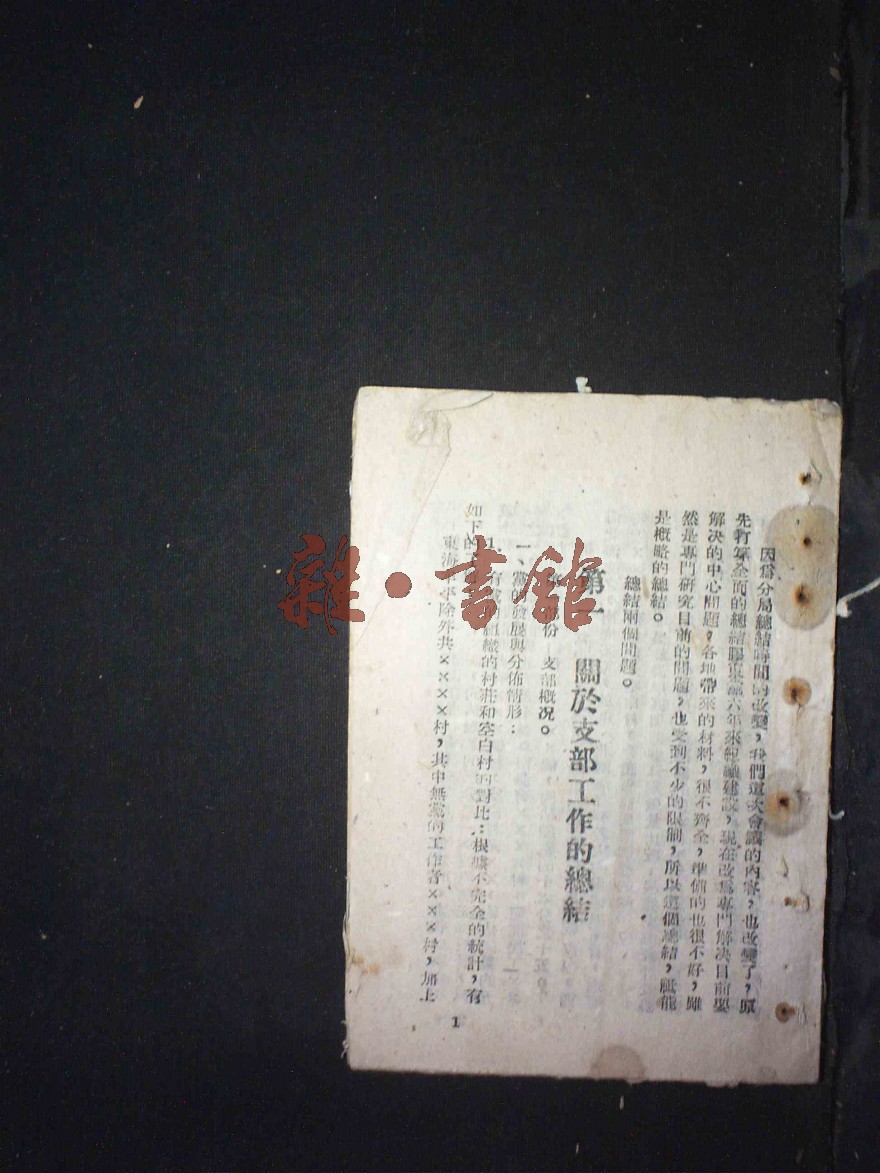 因爲分局總結時間的改變，我們這次會議的內容，也改變了，原
先打算全面的總結膠東黨六年來組織建設，現在改爲專門解决目前要
解决的中心問題，各地帶來的材料，很不齊全，準備的也很不好，雖
然是專門研究目前的問題，也受到不少的限制，所以這個總結，祇能
是槪略的總結。
總結兩個問題。
第一 關於支部工作的總結
部份 支部槪况。
一、黨的發展與分佈情形：
1、有黨 組織的村莊和空白村的對比：根據不完全的統計，有
如下的
東海 除外共××××村，其中無黨的工作者×××村，加上
1
雜·書館